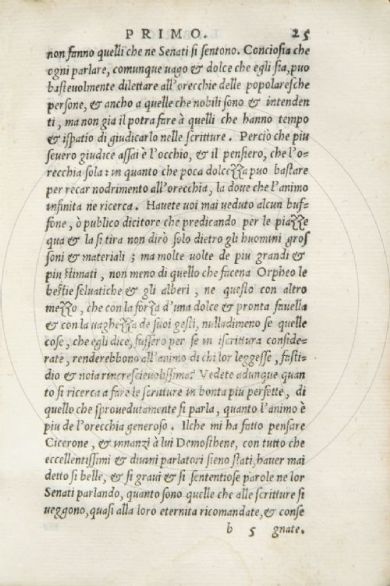 PRIMO. 25
non fanno quelli che ne Senati si sentono. Conciosia che
ogni parlare, comunque uago & dolce che egli sia, puo
basteuolmente dilettare all'orecchie delle popolaresche
persone, & ancho a quelle che nobili sono & intenden
ti, ma non già il potra fare à quelli che hanno tempo
& ispatio di giudicarlo nelle scritture. Percio che piu
seuero giudice assai è l'occhio, & il pensiero, che l'o-
recchia sola: in quanto che poca dolcezza puo bastare
per recar nodrimento all'orecchia, la doue che l'animo
infinita ne ricerca. Hauete uoi mai ueduto alcun buf-
fone, ò publico dicitore che predicando per le piazze
qua & la si tira non dirò solo dietro gli huomini gros
soni & materiali; ma molte uolte de piu grandi &
piu stimati, non meno di quello che facena Orpheo le
bestie seluatiche & gli alberi, ne questo con altro
mezzo, che con la forza d'una dolce & pronta fauella
& con la uaghezza de suoi gesti, nulladimeno se quelle
cose, che egli dice, fussero per se in iscrittura conside-
rate, renderebbono all'animo di chi lor leggesse, fasti-
dio & noia rincresceuolissima? Vedete adunque quan
to si ricerca a fare le scritture in bonta piu perfette, di
quello che sprouedutamente si parla, quanto l'animo è
piu de l'orecchia generoso. Ilche mi ha fatto pensare
Cicerone, & innanzi à lui Demosthene, con tutto che
eccellentissimi & diuini parlatori sieno stati, hauer mai
detto si belle, & si graui & si sententiose parole ne lor
Senati parlando, quanto sono quelle che alle scritture si
ueggono, quasi alla loro eternita ricomandate, & conse
b 5 gnate.